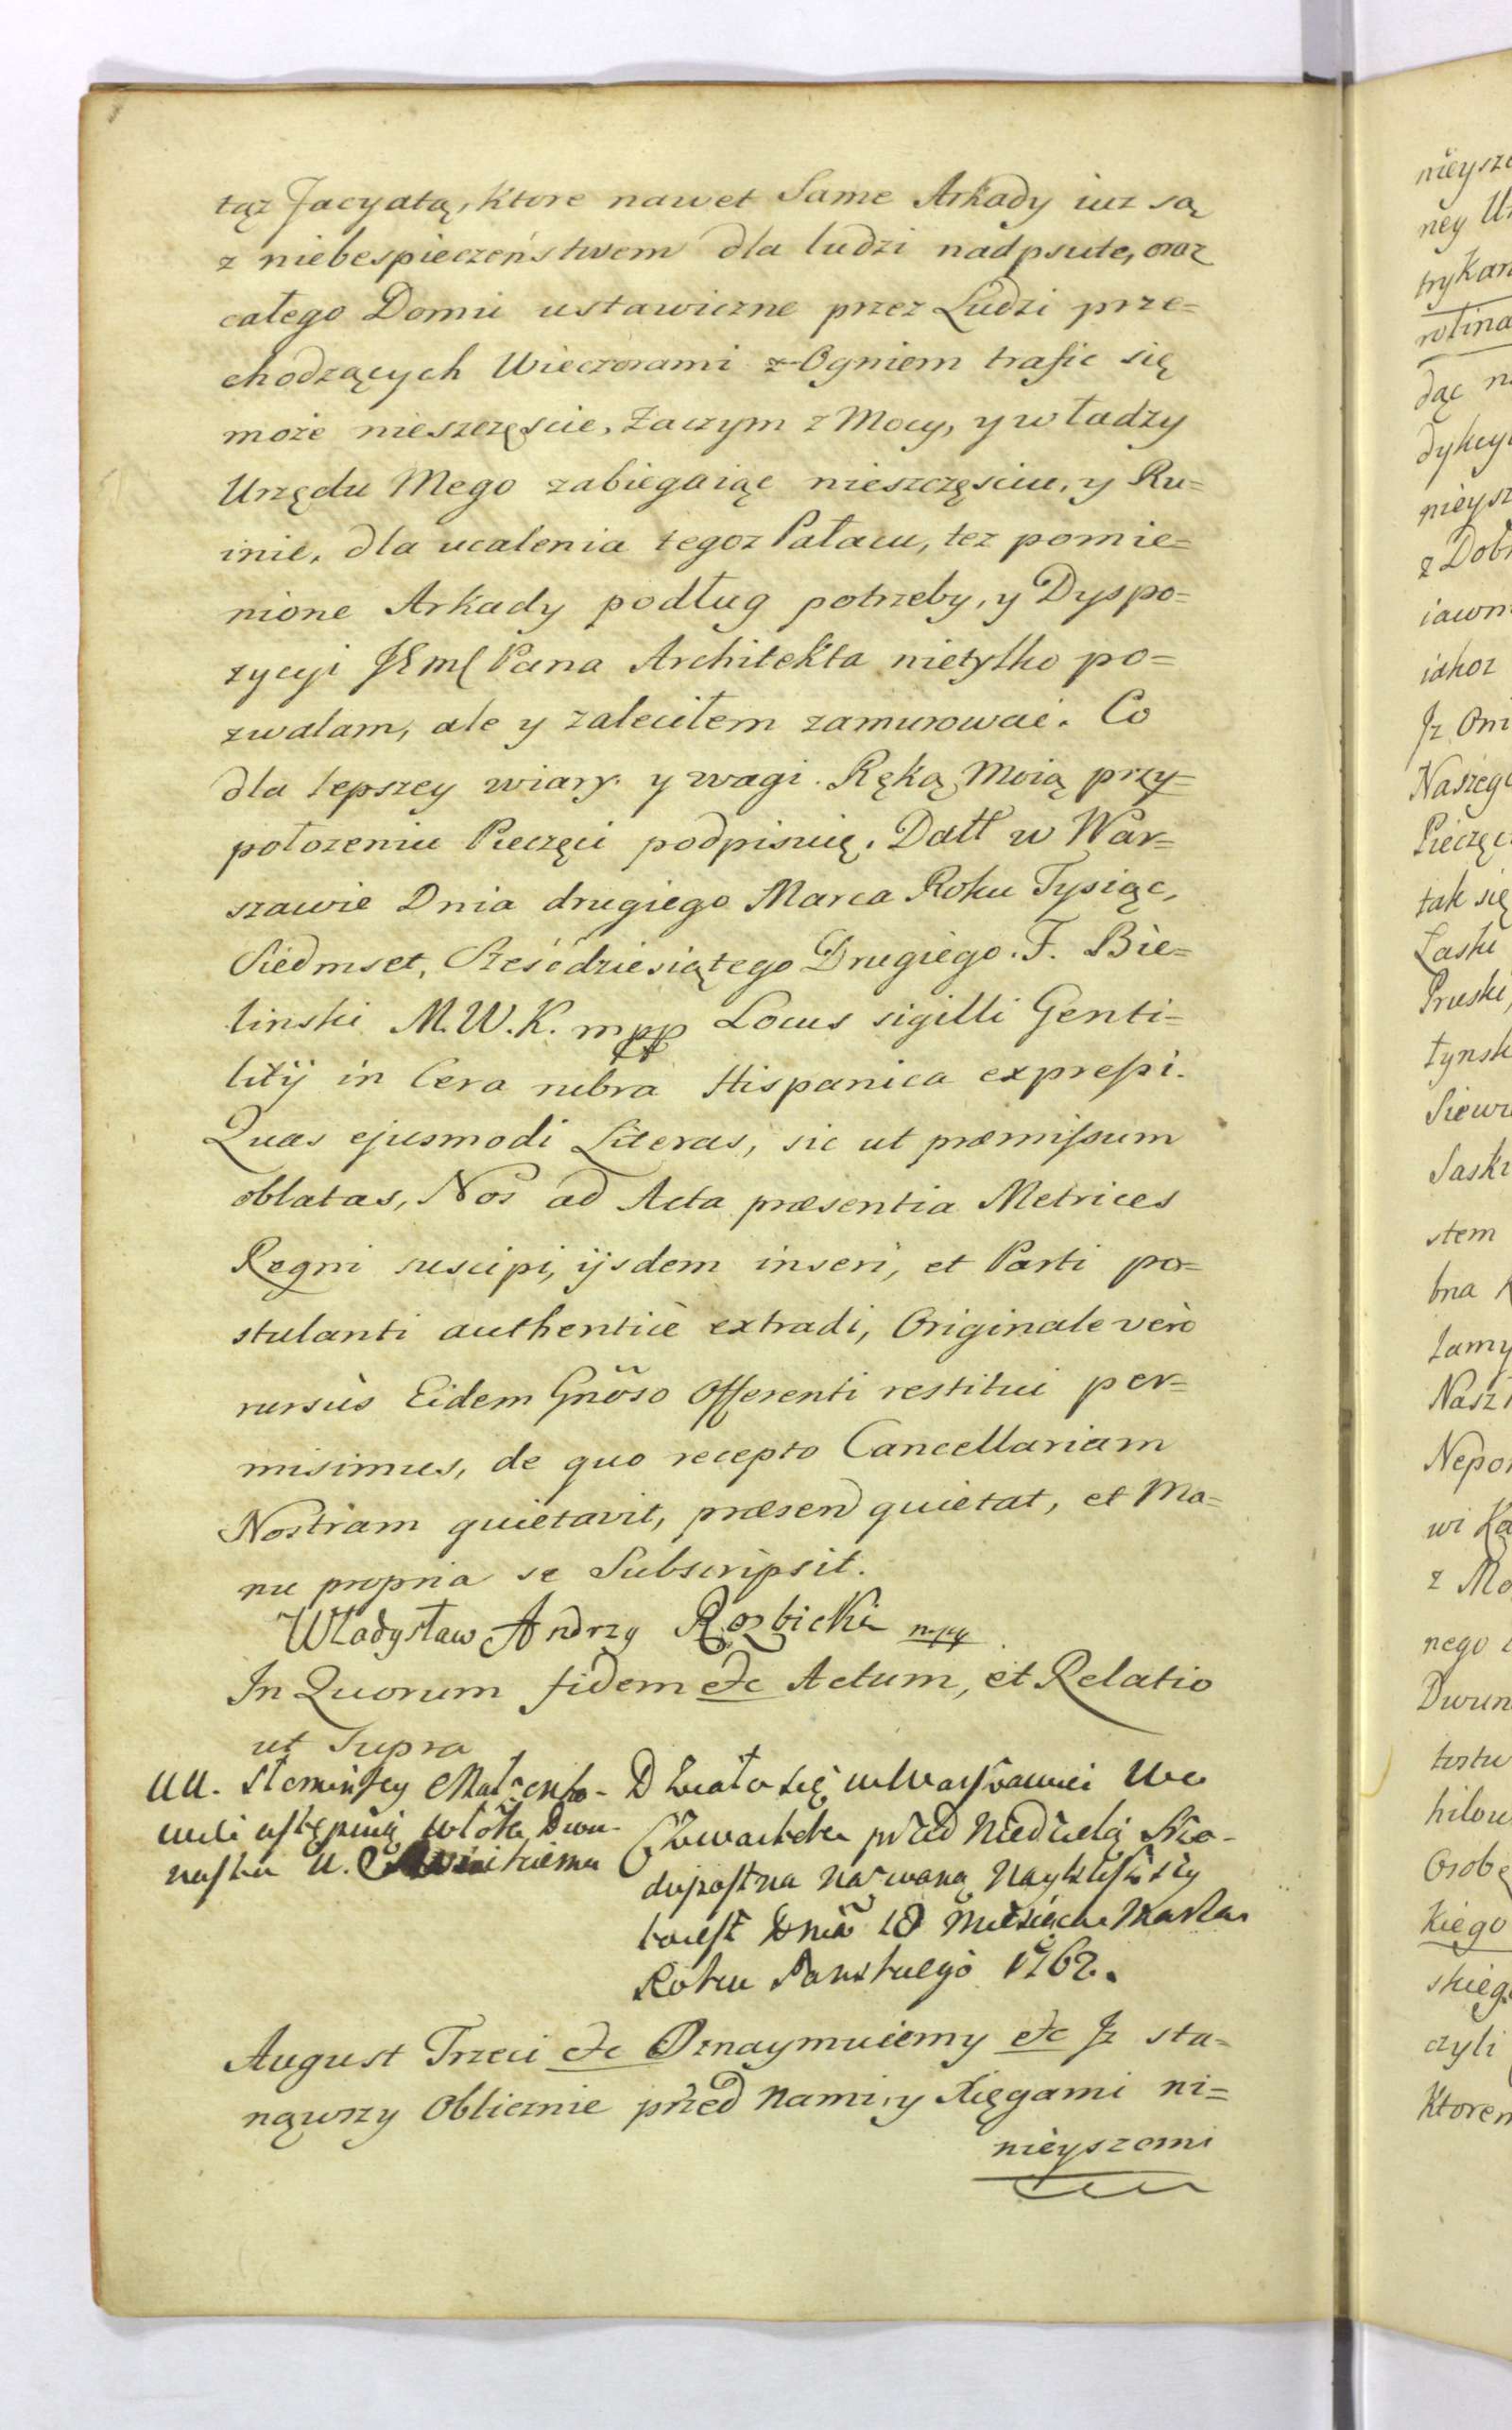 tąz Facyatą, ktore nawet Same Arkady iuz są
z niebespieczeństwem dla ludzi nadpsute, oraz
całego Domu ustawiczne przez Ludzi prze=
chodzących Wieczorami z Ogniem trafic się
może nieszczęscie, Zaczym z Mocy, y władzy
Urzędu Mego zabiegaiąc nieszczęsciu, y Ru=
inie, dla ucalenia tegoz Pałacu, tez pomie=
nione Arkady podług potrzeby, y Dyspo=
zycyi Pana Architekta nietylko po=
zwalam, ale y zaleciłem zamurować. Co
dla lepszey wiary y wagi Ręką Moią przy=
położeniu Pieczęci podpisuię. Datt w War=
szawie Dnia drugiego Marca Roku Tysiąc,
Siedmset, Sześćdziesiątego Drugiego. F. Bie=
linski M.W.K. mpp Locus sigilli Genti=
litij in Cera rubra Hispanica expressi.
Quas ejusmodi Literas, sic ut præmissum
oblatas, Nos ad Acta præsentia Metrices
Regni suscipi, ijsdem inseri, et Parti po=
stulanti authenticè extradi, Originale verò
rursùs Eidem Gnõso Offerenti restitui per=
misimus, de quo recepto Cancellariam
Nostram quietavit, præsen quietat, et Ma=
nu propria se Subscripsit.
Władysław Andrzy Rozbicki mpp
In Quorum fidem etc Actum, et Relatio
ut Supra
UU. Słominscy Małżonko-
wie ustępuią Dwu-
nastu U.
Działo się w Warszawie We
Czwartek przed Niedzielą Sro-
dopostna nazwaną Nayblizszy
to iest Dnia 18 Miesiąca Marca
Roku Panskiego 1762.
August Trzeci etc Oznaymuiemy etc Jz sta-
nąwszy Oblicznie przed Nami, y Xięgami ni=
nieyszemi